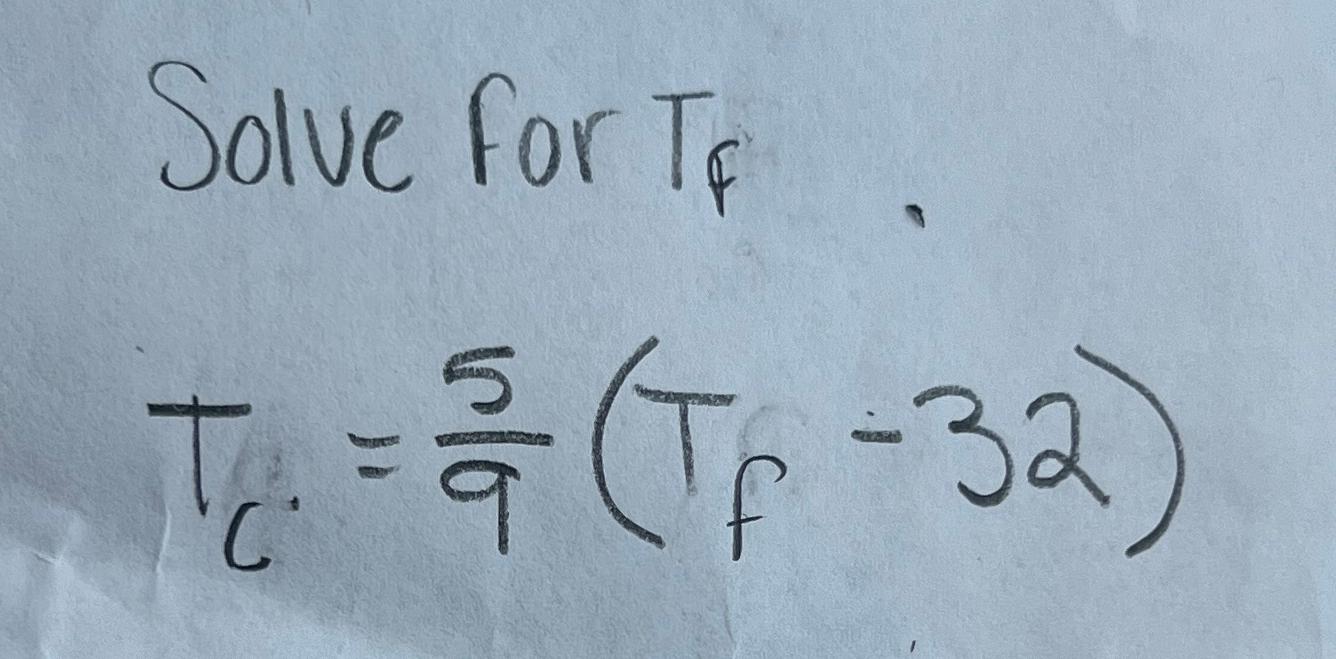 Solve for T_f
T_c = 5/9 (T_f - 32)